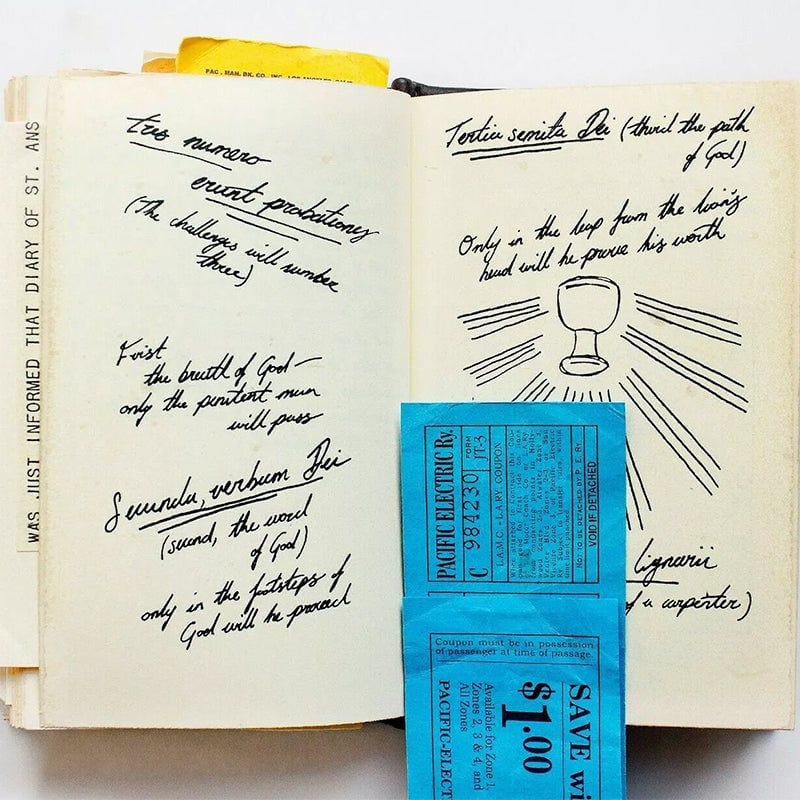 PAC. MAN. BK. CO., INC., LOS ANGELES
WAS JUST INFORMED THAT DIARY OF ST. ANS
tres numero
erunt probationes
(The challenges will number
three)
First
the breath of God—
only the penitent man
will pass
Secunda, verbum Dei
(second, the word
of God)
only in the footsteps of
God will he proceed
Tertia semita Dei (third the path
of God)
Only in the leap from the lion's
head will he prove his worth
lignarii
of a carpenter)
PACIFIC ELECTRIC Ry.
C 984230
FORM
JT-3
L.A.M.C. - L.A.RY. COUPON
NOT TO BE DETACHED BY P. E. RY.
VOID IF DETACHED
Coupon must be in possession
of passenger at time of passage.
SAVE wi
$1.00
Available for Zone 1,
Zones 2, 3 & 4, and
All Zones
PACIFIC-ELECT